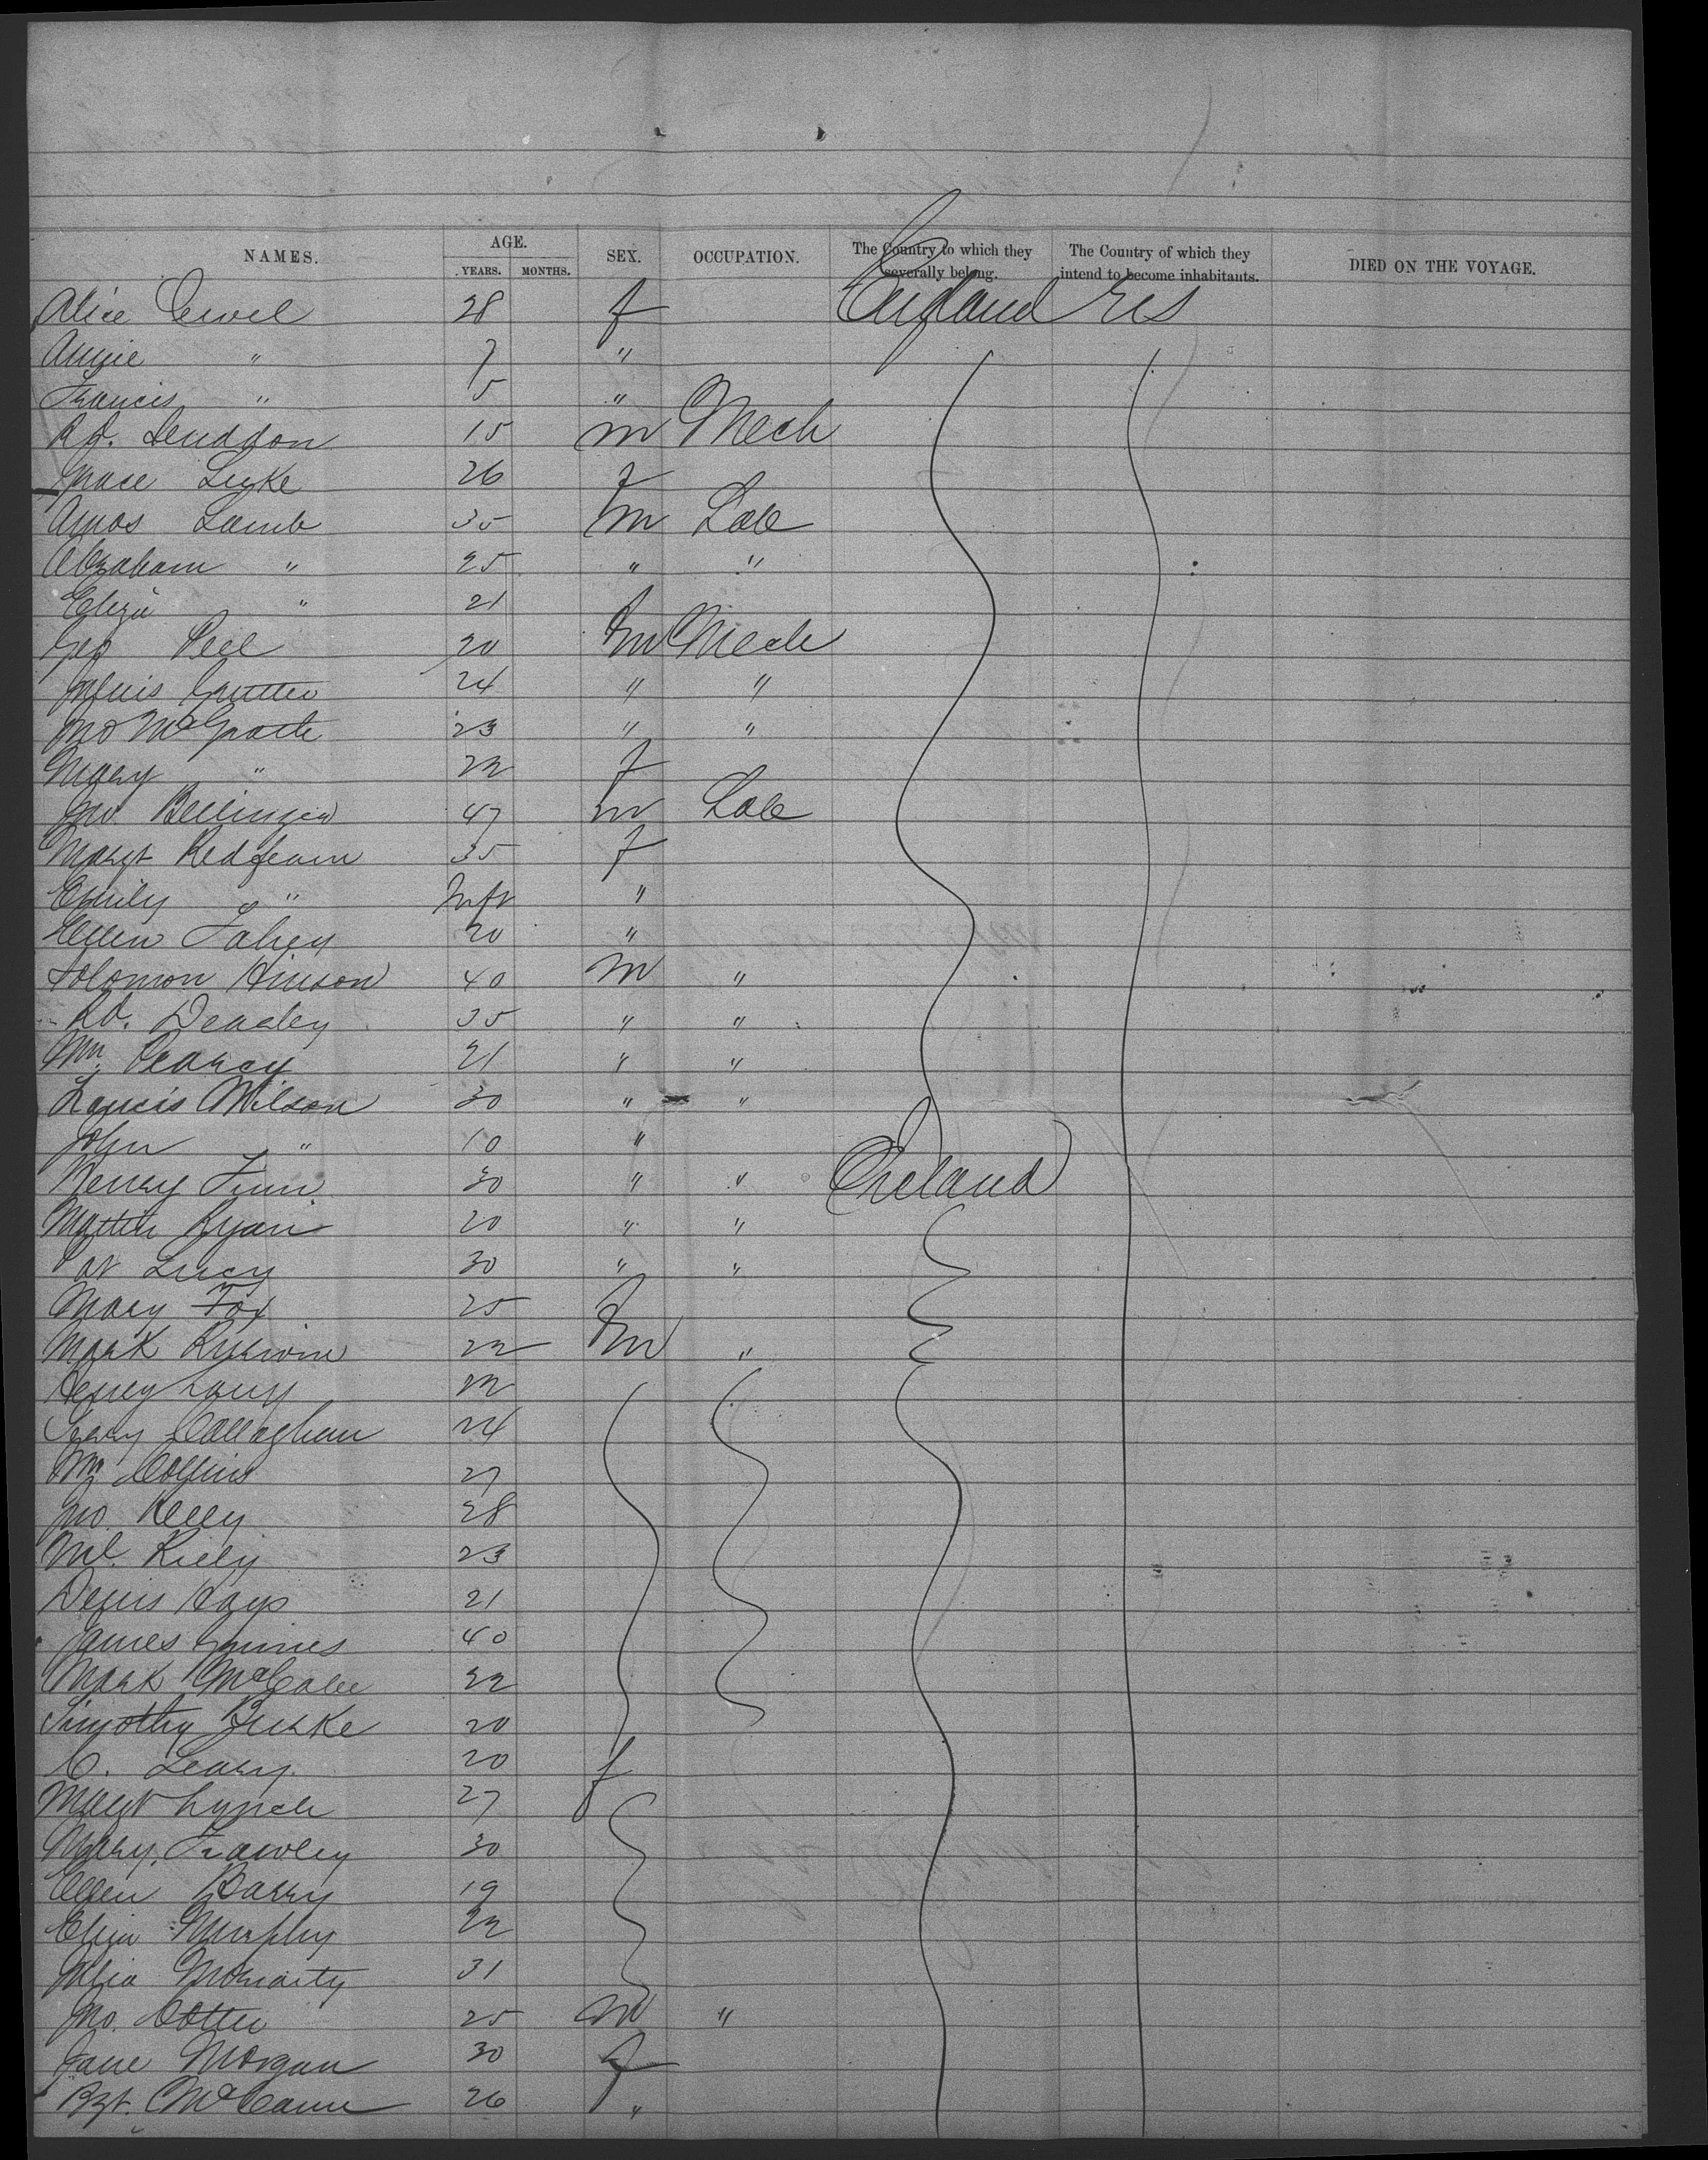 NAMES. AGE. YEARS. MONTHS. SEX. OCCUPATION. The Country to which they severally belong. The Country of which they intend to become inhabitants. DIED ON THE VOYAGE.
Alice 28 f England
Annie " 7 "
Francis " 5 "
15 m Mech
Grace Luke 26 f
Amos Lamb 35 m Lab
Abraham " 25 " "
Eliza " 21 f
Geo Peel 20 m Mech
Julius 24 " "
Jno McGrath 23 " "
Mary " 22 f
Jno. Bellinger 47 m Lab
Margt Redfearn 35 f
Emily " Inft "
Ellen Fahey 20 "
Solomon Hinson 40 m "
Rd. Deadey 35 " "
Wm Pearcy 21 " "
Francis Wilson 30 " "
John " 10 "
Henry Finn 30 " " Ireland
Martin Ryan 20 " "
Pat Lucy 30 " "
Mary Fox 25 f
Mark 22 m "
Henry 22
Callaghan 24
Wm Collins 27
Jno. Kelly 28
Ml. Riely 23
Denis Hays 21
James Grimes 40
Mark McCabe 22
Timothy Burke 20
C. Leary 20 f
Margt Lynch 27
Mary Frawley 30
Ellen Barry 19
Eliza Murphy 22
Julia Moriarty 31
Jno. Cotter 25 m "
Jane Morgan 30 f
Bgt. McCann 26 "